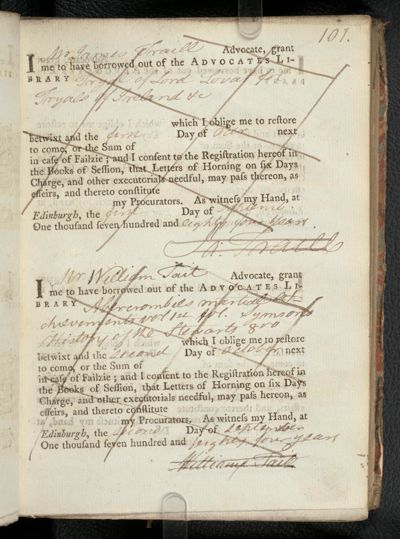 101.
I Mr James Traill Advocate, grant
me to have borrowed out of the ADVOCATES LI-
BRARY Tryal of Lord Lovat
Tryals of Ireland &c
which I oblige me to restore
betwixt and the first Day of Octr next
to come, or the Sum of
in case of Failzie; and I consent to the Registration hereof in
the Books of Session, that Letters of Horning on six Days
Charge, and other executorials needful, may pass thereon, as
effeirs, and thereto constitute
my Procurators. As witness my Hand, at
Edinburgh, the first Day of
One thousand seven hundred and eighty four years
Ja. Traill
I Mr William Tait Advocate, grant
me to have borrowed out of the ADVOCATES LI-
BRARY Abercrombies martial at-
chievements vol 1st fol. Symsons
history of the Stewarts 8vo
which I oblige me to restore
betwixt and the second Day of october next
to come, or the Sum of
in case of Failzie; and I consent to the Registration hereof in
the Books of Session, that Letters of Horning on six Days
Charge, and other executorials needful, may pass hereon, as
effeirs, and thereto constitute
my Procurators. As witness my Hand, at
Edinburgh, the second Day of september
One thousand seven hundred and eighty four years
William Tait